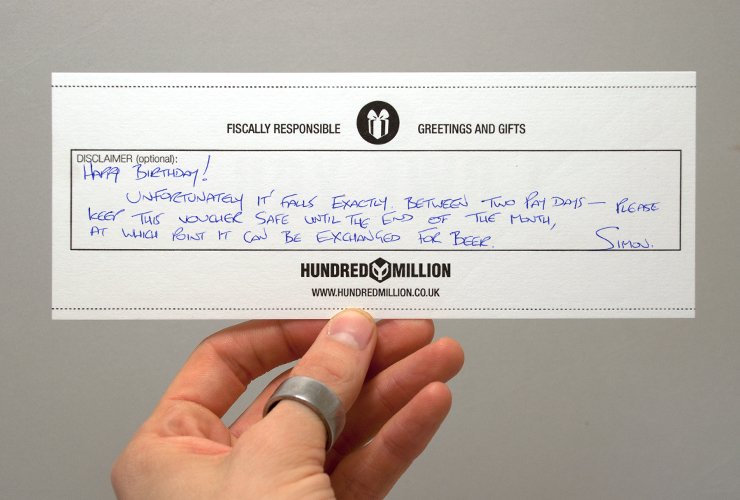 FISCALLY RESPONSIBLE GREETINGS AND GIFTS
DISCLAIMER (optional):
HAPPY BIRTHDAY!
UNFORTUNATELY IT FALLS EXACTLY BETWEEN TWO PAY DAYS — PLEASE
KEEP THIS VOUCHER SAFE UNTIL THE END OF THE MONTH,
AT WHICH POINT IT CAN BE EXCHANGED FOR BEER. SIMON.
HUNDRED MILLION
WWW.HUNDREDMILLION.CO.UK